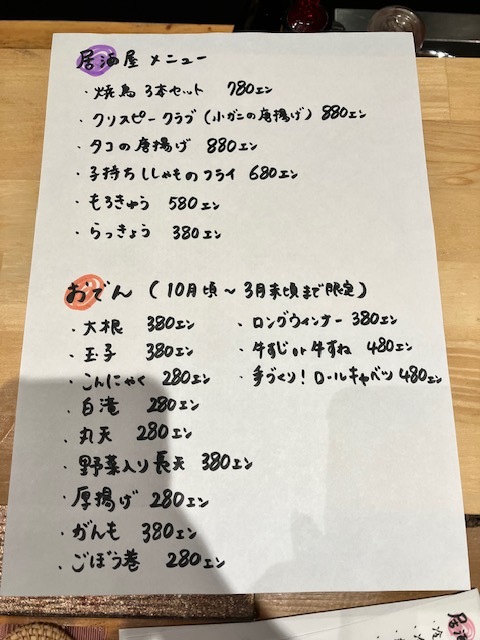 居酒屋 メニュー
・焼鳥 3本セット 780エン
・クリスピークラブ(小ガニの唐揚げ) 880エン
・タコの唐揚げ 880エン
・子持ちししゃものフライ 680エン
・もろきゅう 580エン
・らっきょう 380エン
おでん (10月頃〜3月末頃まで限定)
・大根 380エン
・玉子 380エン
・こんにゃく 280エン
・白滝 280エン
・丸天 280エン
・野菜入り長天 380エン
・厚揚げ 280エン
・がんも 380エン
・ごぼう巻 280エン
・ロングウィンナー 380エン
・牛すじor牛すね 480エン
・手づくり!ロールキャベツ 480エン
居酒